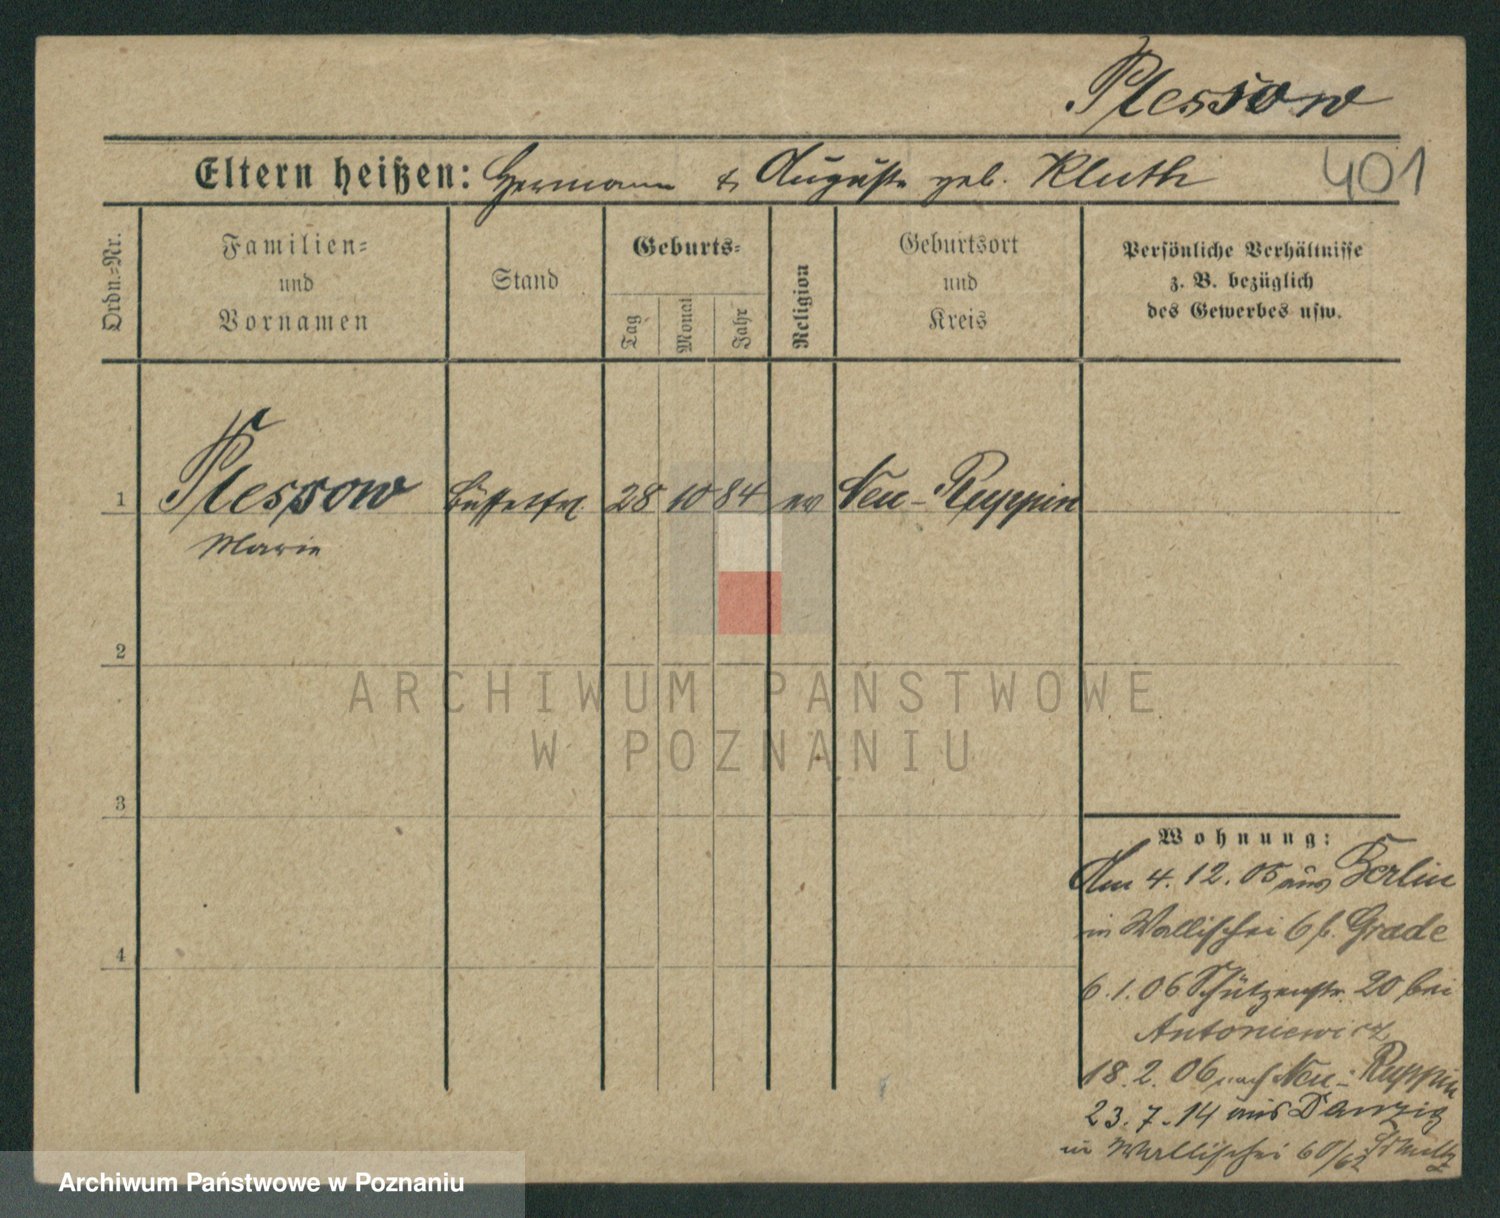 Plessow
Eltern heißen: Hermann & Auguste geb. Kluth
401
Ordn.=Nr.
Familien=
und
Vornamen
Stand
Geburts=
Tag
Monat
Jahr
Religion
Geburtsort
und
Kreis
Persönliche Verhältnisse
z. B. bezüglich
des Gewerbes usw.
1 Plessow Büffetfrl. 28 10 84 ev Neu-Ruppin
Marie
2
ARCHIWUM PAŃSTWOWE
W POZNANIU
3
Wohnung:
Am 4. 12. 05 aus Berlin
in Wallischei 6 b. Grade
4
6. 1. 06 Schützenstr. 20 bei
Antoniewicz
18. 2. 06 nach Neu-Ruppin
23. 7. 14 aus Danzig
in Wallischei 60/62 Schultz
Archiwum Państwowe w Poznaniu